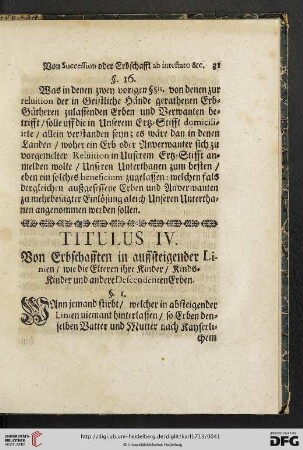 Von Succession oder Erbschafft ab intestato &c. 31
§. 16.
Was in denen zwey vorigen §§is. von denen zur
reluition der in Geistliche Hände gerathenen Erb-
Gütheren zulassenden Erben und Verwanten be-
trifft / solle uff die in Unserem Ertz-Stifft domicili-
irte / allein verstanden seyn; es wäre dan in denen
Landen / woher ein Erb oder Anverwanter sich zu
vorgemelter Reluition in Unserem Ertz-Stifft an-
melden wolte / Unseren Unterthanen zum besten /
eben ein solches beneficium zugelassen: welchen falß
dergleichen außgesessene Erben und Anverwanten
zu mehrbesagter Einlösung gleich Unseren Unterrtha-
nen angenommen werden sollen.
TITULUS IV.
Von Erbschafften in auffsteigender Li-
nien / wie die Elteren ihre Kinder / Kinds-
Kinder und andere Descendenten Erben.
§. 1.
WAnn jemand stirbt / welcher in absteigender
Linien niemant hinterlassen / so Erben den-
selben Vatter und Mutter nach Käyserli-
chem
http://digi.ub.uni-heidelberg.de/diglit/kurl1713/0041
DFG